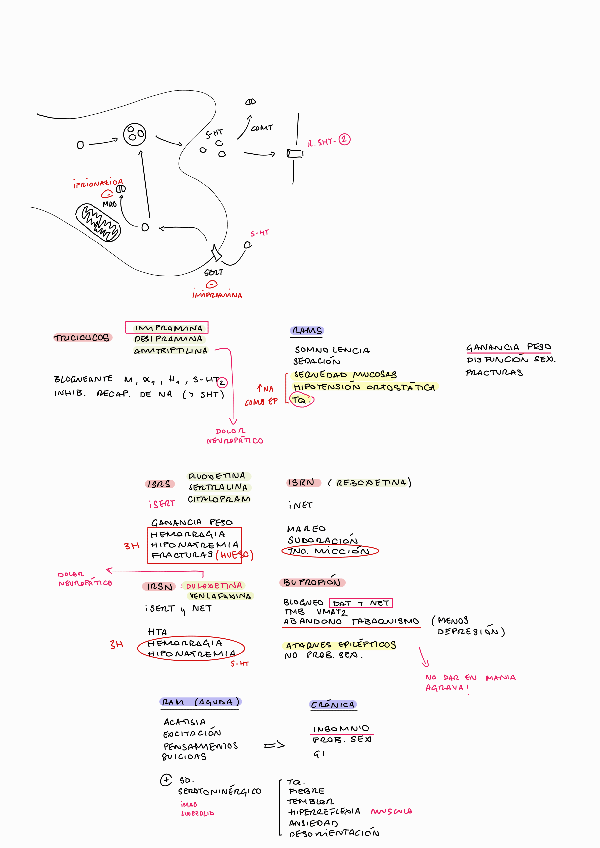 5-HT
COMT
R. 5HT-2
IPRONIACIDA
MAO
5-HT
SERT
IMIPRAMINA
TRICICLICOS
IMIPRAMINA
DESIPRAMINA
AMITRIPTILINA
BLOQUEANTE M, α1, H1, 5-HT2
INHIB. RECAP. DE NA (> 5HT)
DOLOR
NEUROPÁTICO
RAMS
SOMNOLENCIA
SEDACIÓN
SEQUEDAD MUCOSAS
HIPOTENSIÓN ORTOSTÁTICA
TQ.
↑NA
COMO EF
GANANCIA PESO
DISFUNCIÓN SEX.
FRACTURAS
ISRS
FLUOXETINA
SERTRALINA
CITALOPRAM
iSERT
GANANCIA PESO
3H
HEMORRAGIA
HIPONATREMIA
FRACTURAS (HUESO)
ISRN (REBOXETINA)
iNET
MAREO
SUDORACIÓN
TNO. MICCIÓN
DOLOR
NEUROPÁTICO
IRSN : DULOXETINA
VENLAFAXINA
iSERT y NET
HTA
3H
HEMORRAGIA
HIPONATREMIA
5-HT
BUPROPIÓN
BLOQUEO DAT Y NET
TMB VMAT2
ABANDONO TABAQUISMO (MENOS
DEPRESIÓN)
ATAQUES EPILÉPTICOS
NO PROB. SEX.
NO DAR EN MANIA
AGRAVA!
RAM (AGUDA)
ACATISIA
EXCITACIÓN
PENSAMIENTOS
SUICIDAS
=>
CRÓNICA
INSOMNIO
PROB. SEX
GI
+ SD.
SEROTONINÉRGICO
iMAO
TQ.
FIEBRE
TEMBLOR
HIPERREFLEXIA MUSCULO
ANSIEDAD
DESORIENTACIÓN